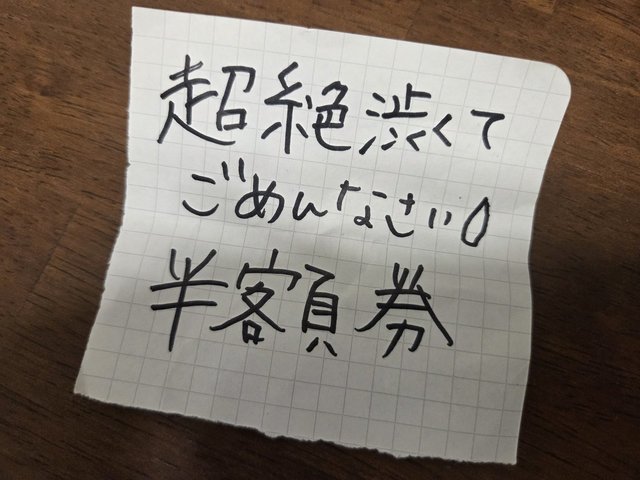 超絶渋くて
ごめんなさい💧
半額券